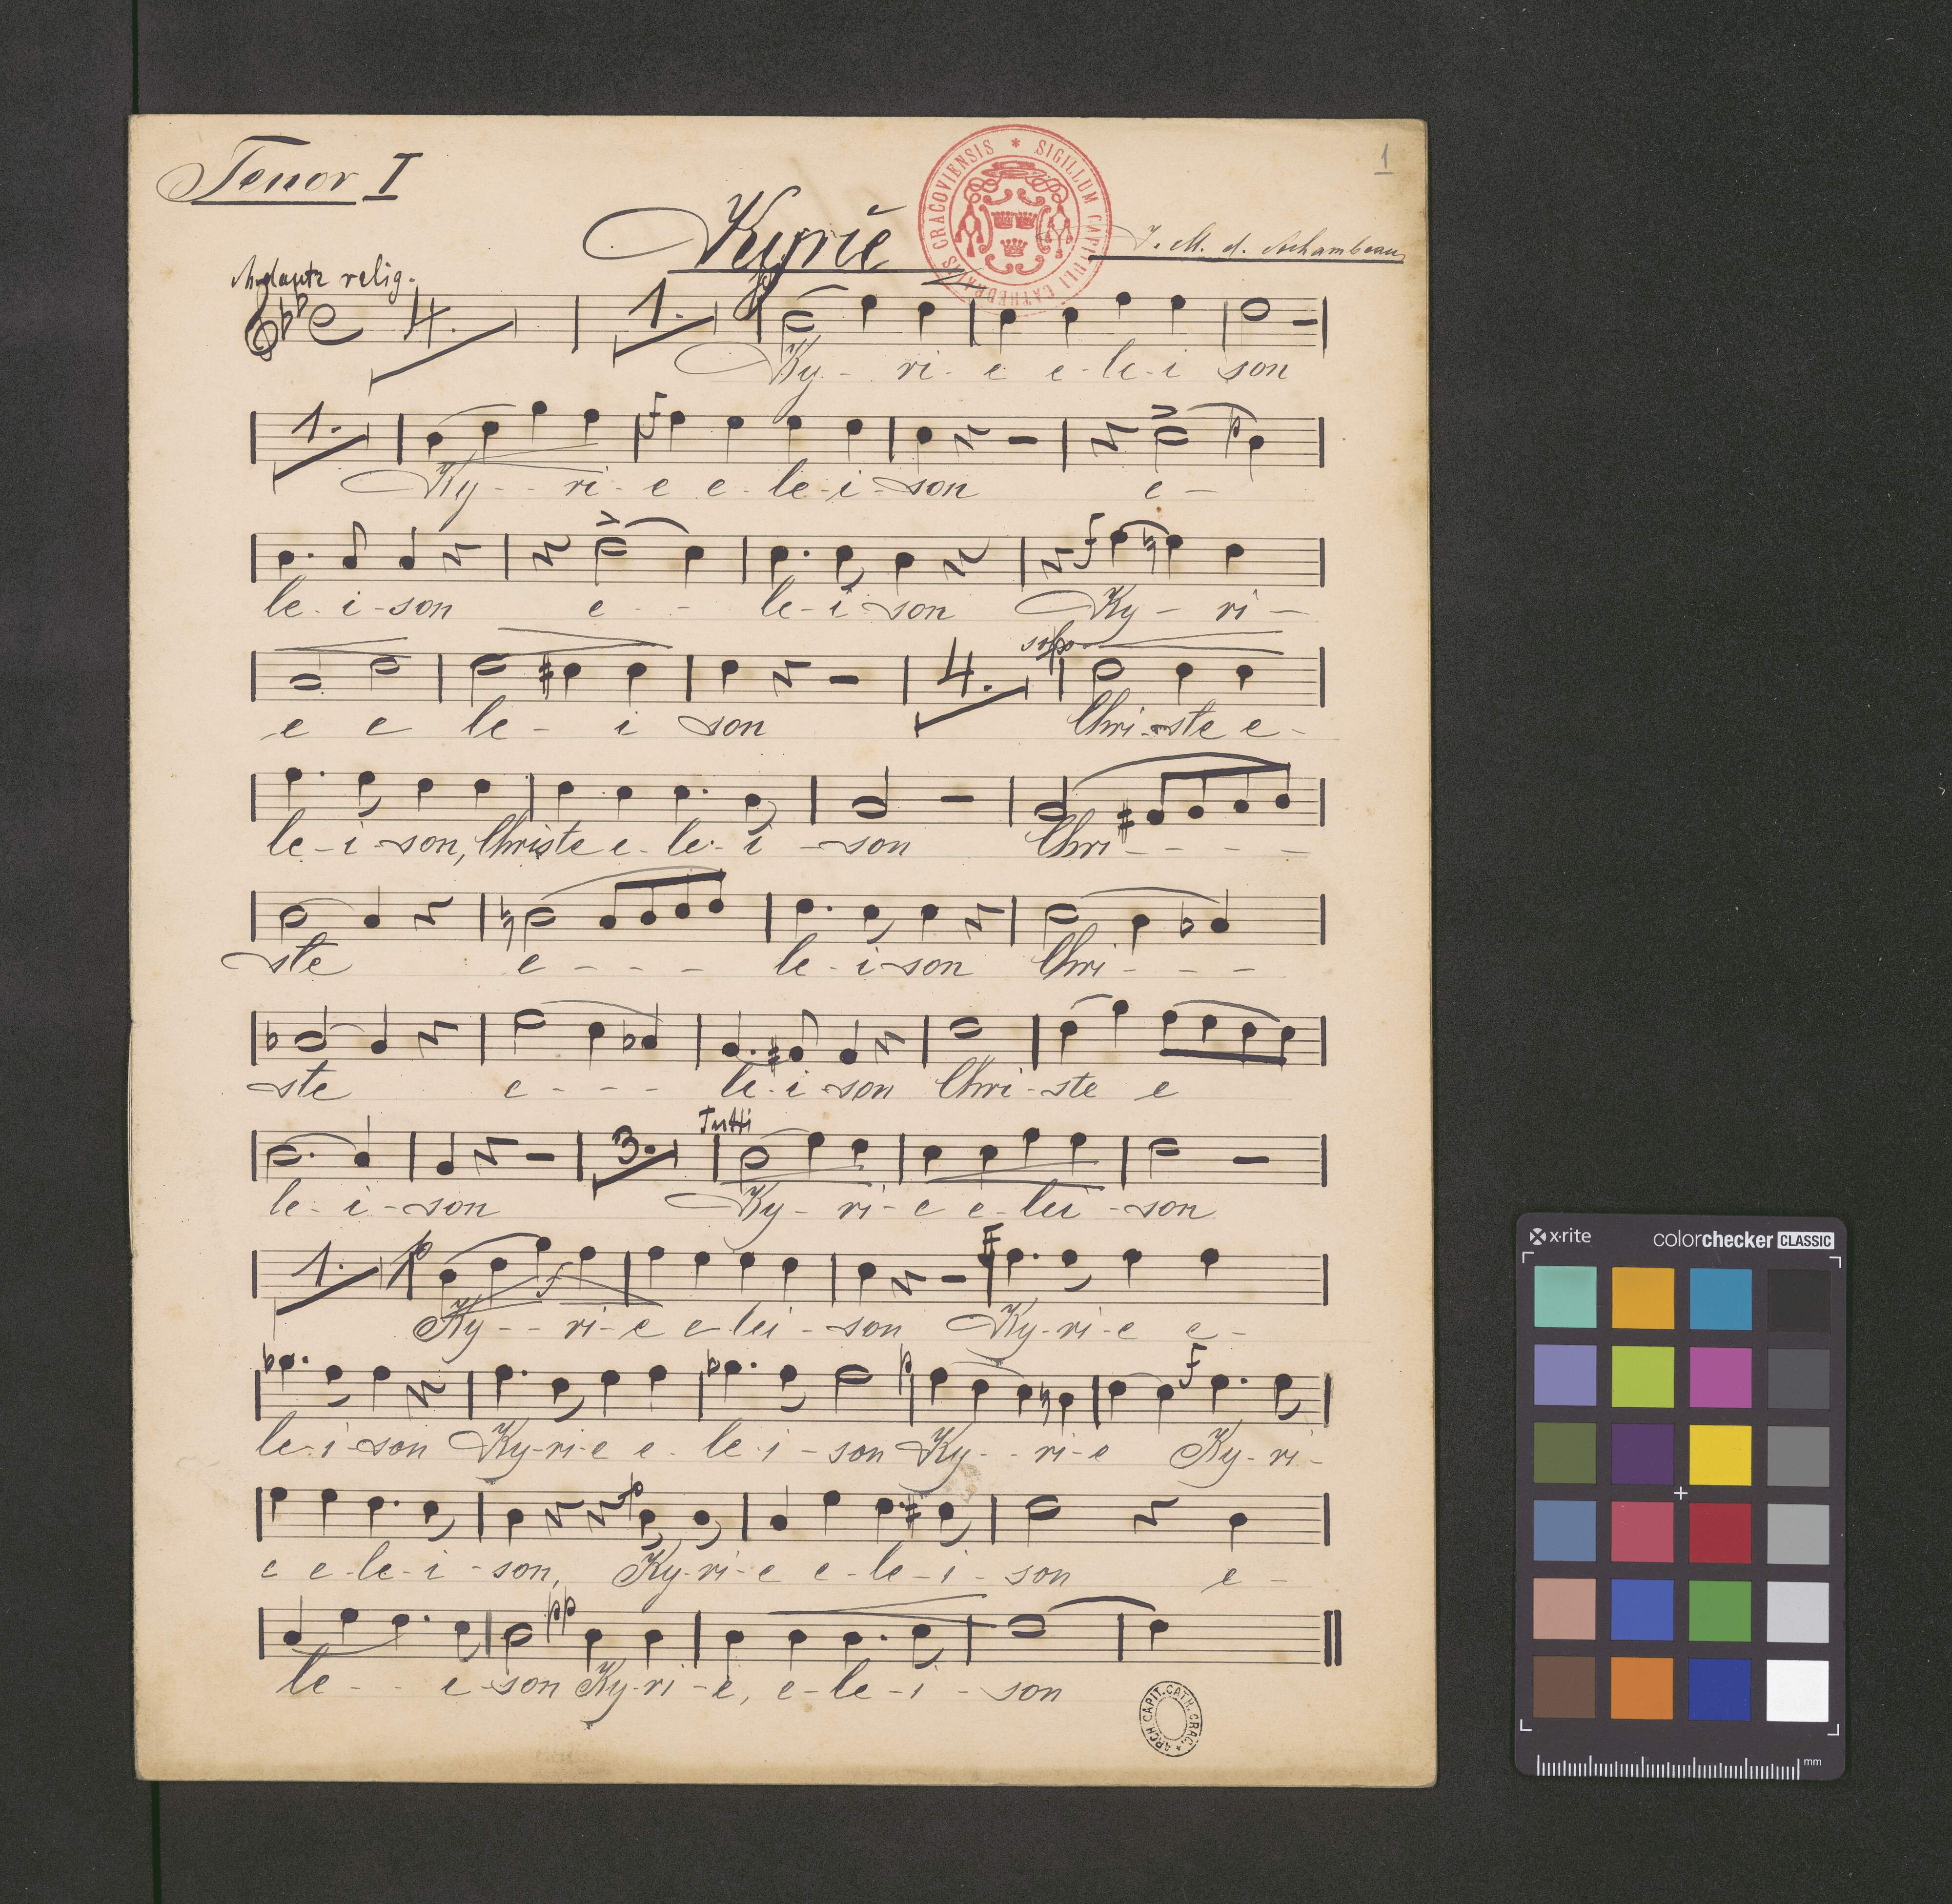 Tenor I
1
Kyrie
J. M. d. Archambeau
SIGILLUM CAPITULI CATHEDRALIS CRACOVIENSIS
Andante relig.
4. 1.
Ky - ri - e e - le - i son
1. f p
Ky - - ri - e e - le - i - son e -
f
le - i - son e - - le - i - son Ky - ri -
4. solo p
e e le - i son Chri - ste e -
le - i - son, Christe e - le - i - son Chri - - - -
ste e - - - - le - i - son Chri - - -
ste e - - - le - i - son Chri - ste e
3. Tutti
le - i - son Ky - ri - e e - lei - son
1. p f f
Ky - - ri - e e - lei - son Ky - ri - e e -
p f
le - i - son Ky - ri - e e - le - i - son Ky - - ri - e Ky - ri -
p
e e - le - i - son, Ky - ri - e e - le - i - son e -
pp
le - - e - son Ky - ri - e, e - le - i - son
ARCH. CAPIT. CATH. CRAC.
x·rite colorchecker CLASSIC
mm